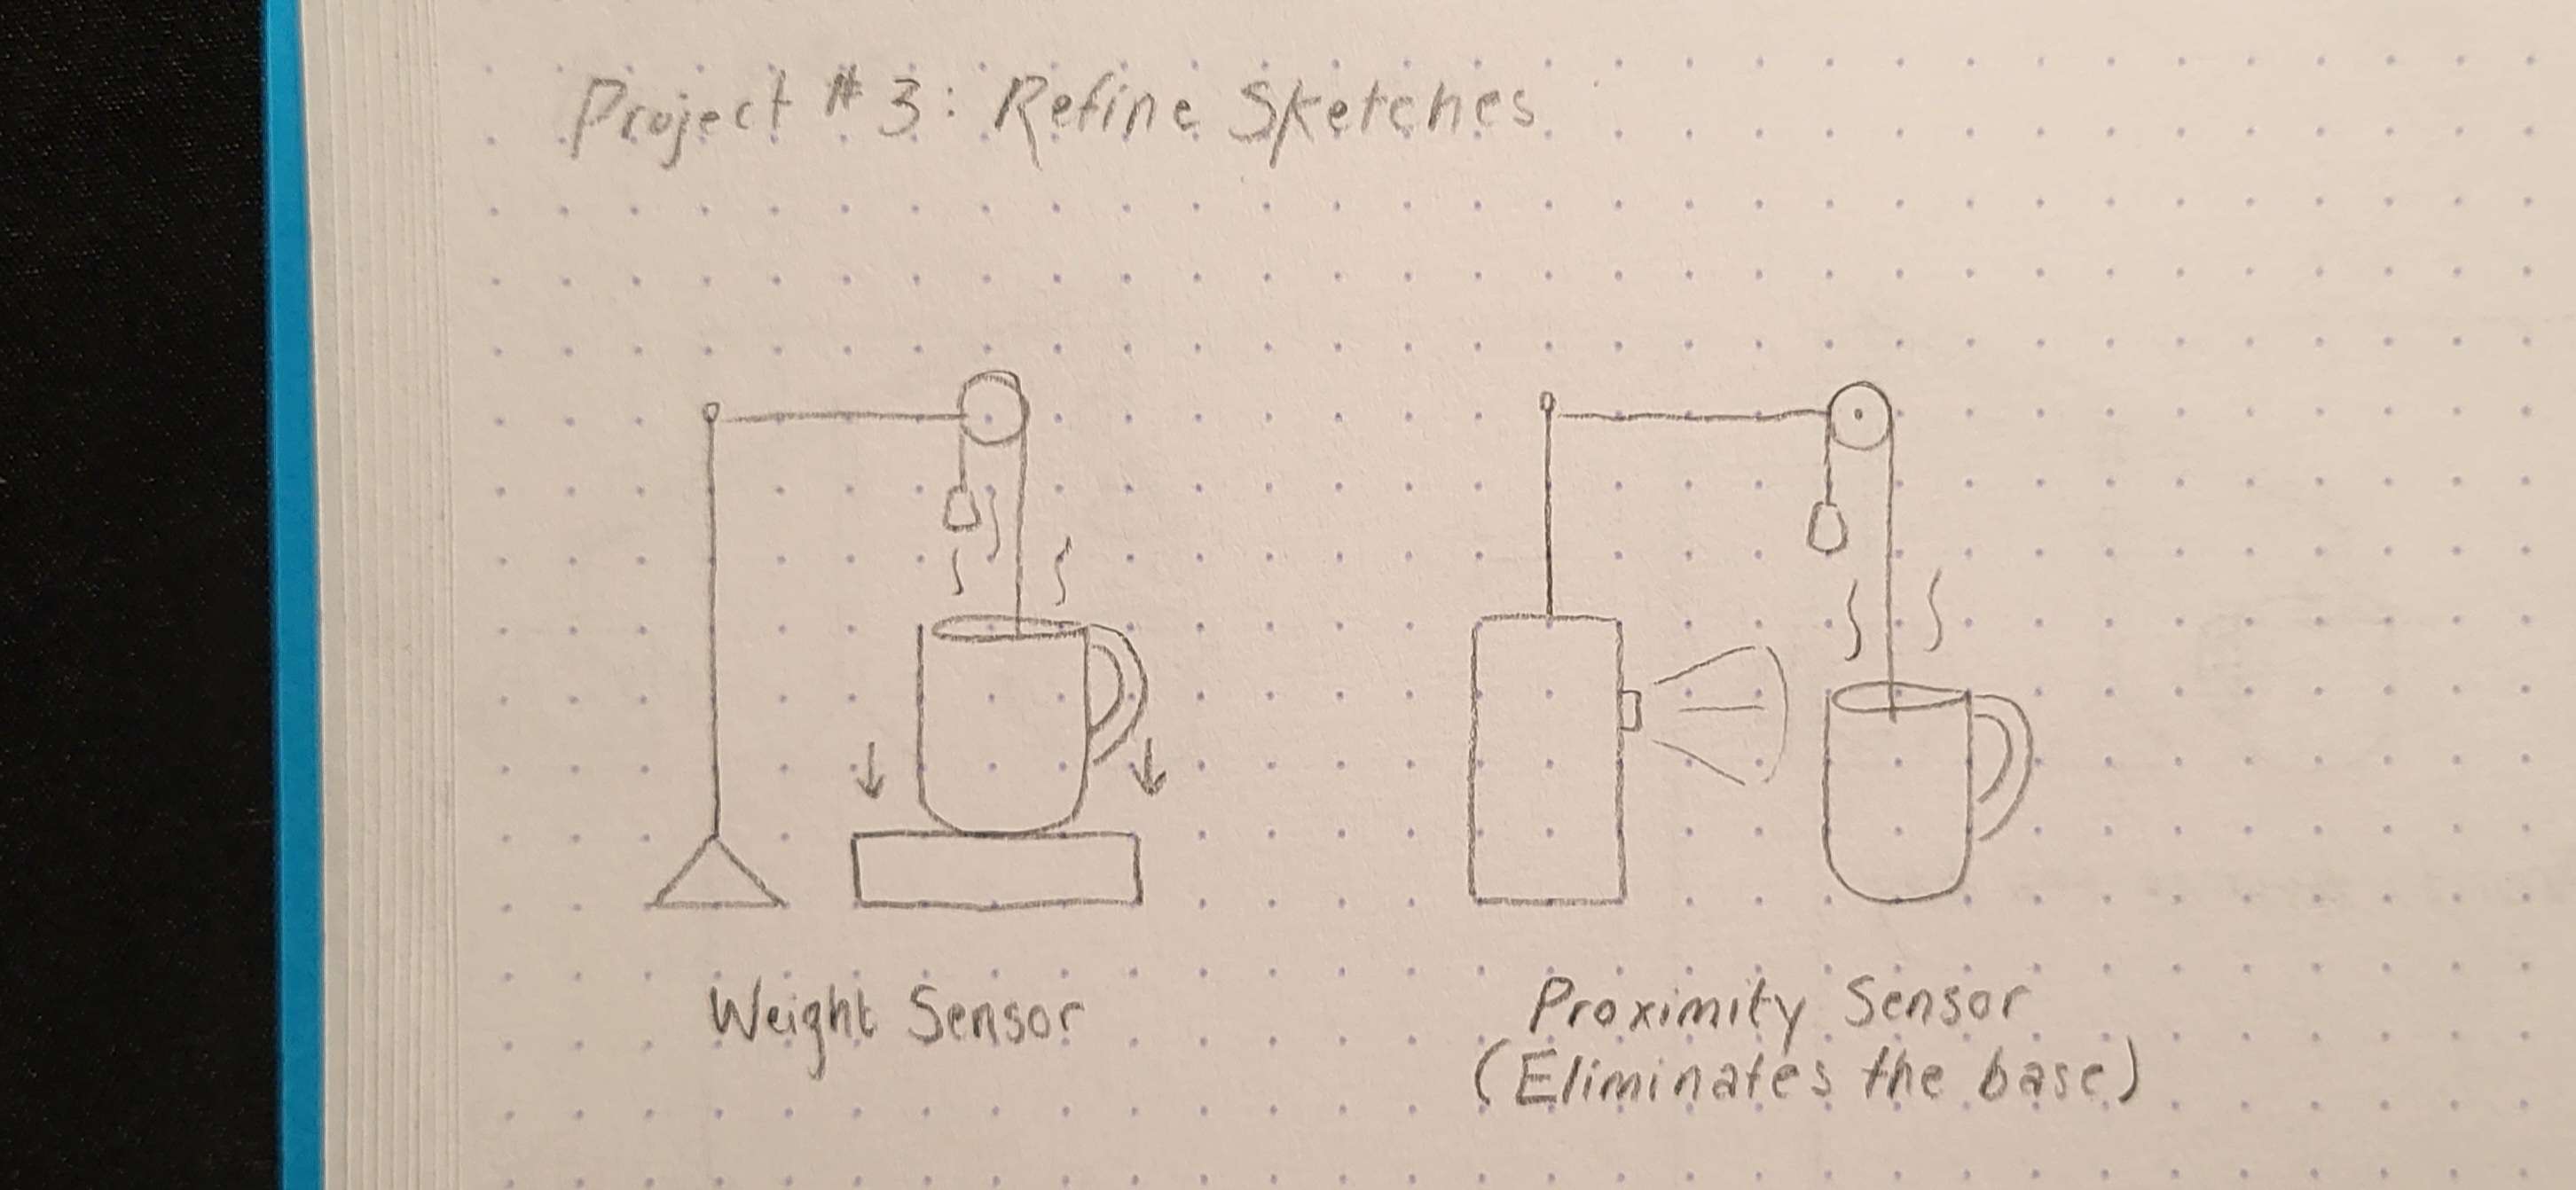 Project # 3: Refine Sketches
Weight Sensor
Proximity Sensor
(Eliminates the base)